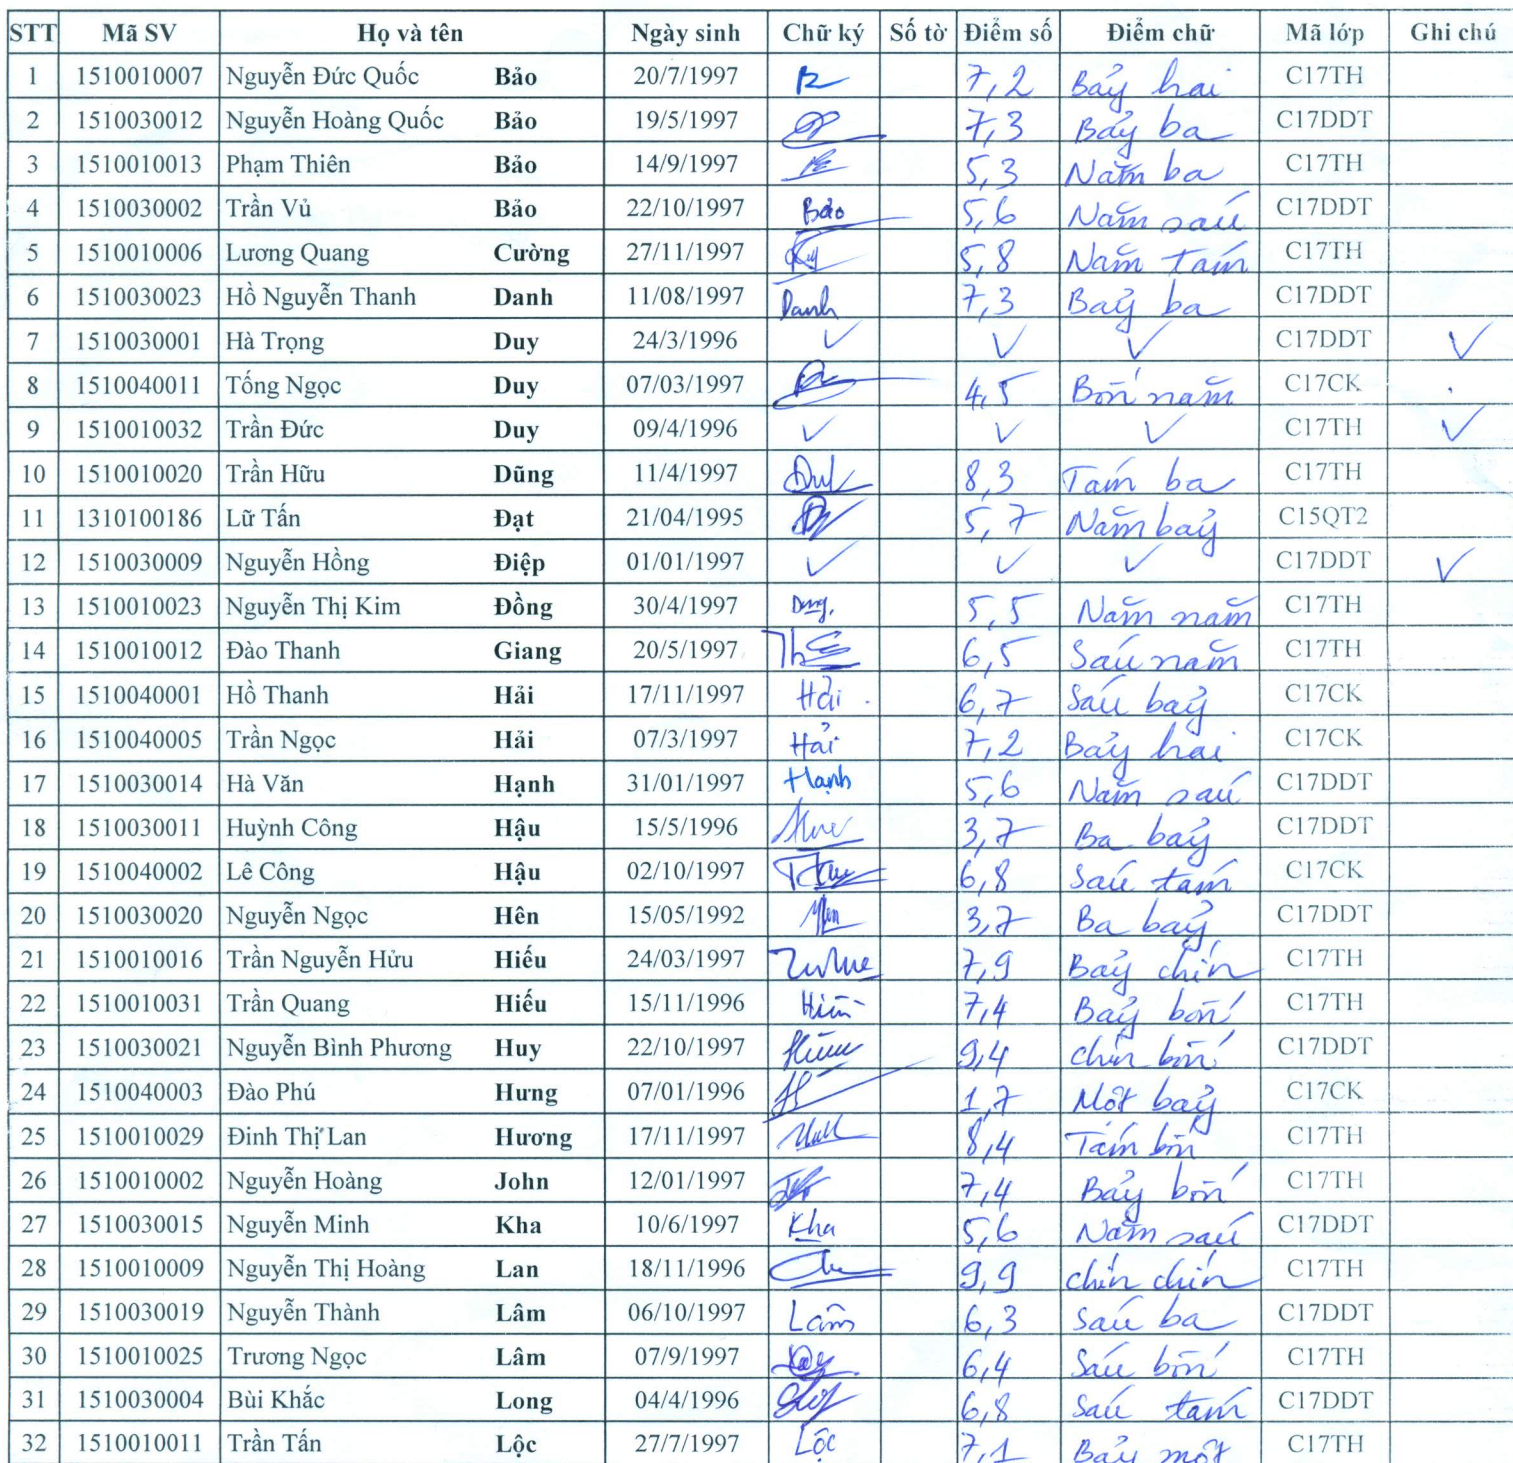 STT Mã SV Họ và tên Ngày sinh Chữ ký Số tờ Điểm số Điểm chữ Mã lớp Ghi chú
1 1510010007 Nguyễn Đức Quốc Bảo 20/7/1997 7,2 Bảy hai C17TH
2 1510030012 Nguyễn Hoàng Quốc Bảo 19/5/1997 7,3 Bảy ba C17DDT
3 1510010013 Phạm Thiên Bảo 14/9/1997 5,3 Năm ba C17TH
4 1510030002 Trần Vủ Bảo 22/10/1997 Bảo 5,6 Năm sáu C17DDT
5 1510010006 Lương Quang Cường 27/11/1997 5,8 Năm tám C17TH
6 1510030023 Hồ Nguyễn Thanh Danh 11/08/1997 Danh 7,3 Bảy ba C17DDT
7 1510030001 Hà Trọng Duy 24/3/1996 ✓ ✓ ✓ C17DDT ✓
8 1510040011 Tống Ngọc Duy 07/03/1997 4,5 Bốn năm C17CK
9 1510010032 Trần Đức Duy 09/4/1996 ✓ ✓ ✓ C17TH ✓
10 1510010020 Trần Hữu Dũng 11/4/1997 8,3 Tám ba C17TH
11 1310100186 Lữ Tấn Đạt 21/04/1995 5,7 Năm bảy C15QT2
12 1510030009 Nguyễn Hồng Điệp 01/01/1997 ✓ ✓ ✓ C17DDT ✓
13 1510010023 Nguyễn Thị Kim Đồng 30/4/1997 5,5 Năm năm C17TH
14 1510010012 Đào Thanh Giang 20/5/1997 6,5 Sáu năm C17TH
15 1510040001 Hồ Thanh Hải 17/11/1997 Hải 6,7 Sáu bảy C17CK
16 1510040005 Trần Ngọc Hải 07/3/1997 Hải 7,2 Bảy hai C17CK
17 1510030014 Hà Văn Hạnh 31/01/1997 Hạnh 5,6 Năm sáu C17DDT
18 1510030011 Huỳnh Công Hậu 15/5/1996 3,7 Ba bảy C17DDT
19 1510040002 Lê Công Hậu 02/10/1997 6,8 Sáu tám C17CK
20 1510030020 Nguyễn Ngọc Hên 15/05/1992 3,7 Ba bảy C17DDT
21 1510010016 Trần Nguyễn Hửu Hiếu 24/03/1997 7,9 Bảy chín C17TH
22 1510010031 Trần Quang Hiếu 15/11/1996 7,4 Bảy bốn C17TH
23 1510030021 Nguyễn Bình Phương Huy 22/10/1997 9,4 chín bốn C17DDT
24 1510040003 Đào Phú Hưng 07/01/1996 1,7 Một bảy C17CK
25 1510010029 Đinh Thị Lan Hương 17/11/1997 8,4 Tám bốn C17TH
26 1510010002 Nguyễn Hoàng John 12/01/1997 7,4 Bảy bốn C17TH
27 1510030015 Nguyễn Minh Kha 10/6/1997 Kha 5,6 Năm sáu C17DDT
28 1510010009 Nguyễn Thị Hoàng Lan 18/11/1996 9,9 chín chín C17TH
29 1510030019 Nguyễn Thành Lâm 06/10/1997 Lâm 6,3 Sáu ba C17DDT
30 1510010025 Trương Ngọc Lâm 07/9/1997 6,4 Sáu bốn C17TH
31 1510030004 Bùi Khắc Long 04/4/1996 6,8 Sáu tám C17DDT
32 1510010011 Trần Tấn Lộc 27/7/1997 Lộc 7,1 Bảy một C17TH